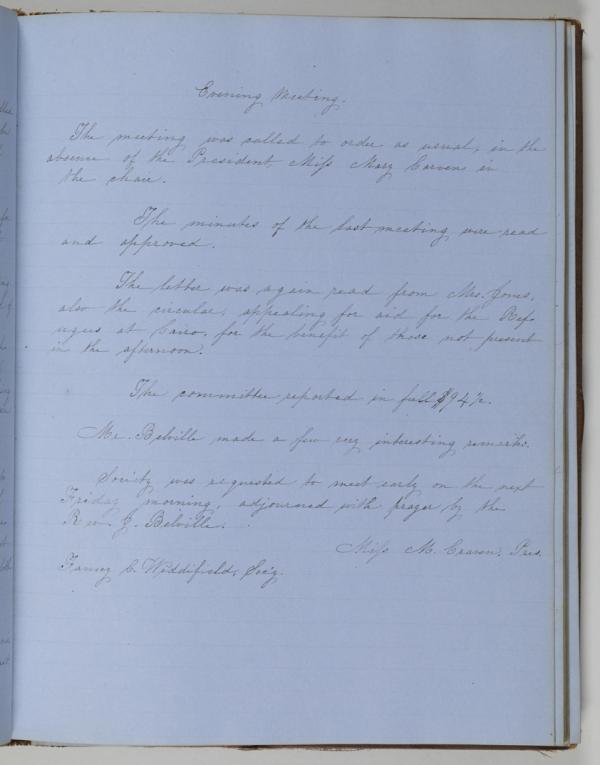 Evening Meeting.
The meeting was called to order as usual, in the
absence of the President, Miss Mary Cravens in
the chair.
The minutes of the last meeting were read
and approved.
The letter was again read from Mrs. Jones,
also the circular, appealing for aid for the Ref-
ugees at Cairo, for the benefit of those not present
in the afternoon.
The committee reported in full $94½.
Mr. Belville made a few very interesting remarks.
Society was requested to meet early on the next
Friday morning, adjourned with prayer by the
Rev. J. Belville.
Miss M. Craven, Pres.
Fanny C. Widdifield, Sec'y.